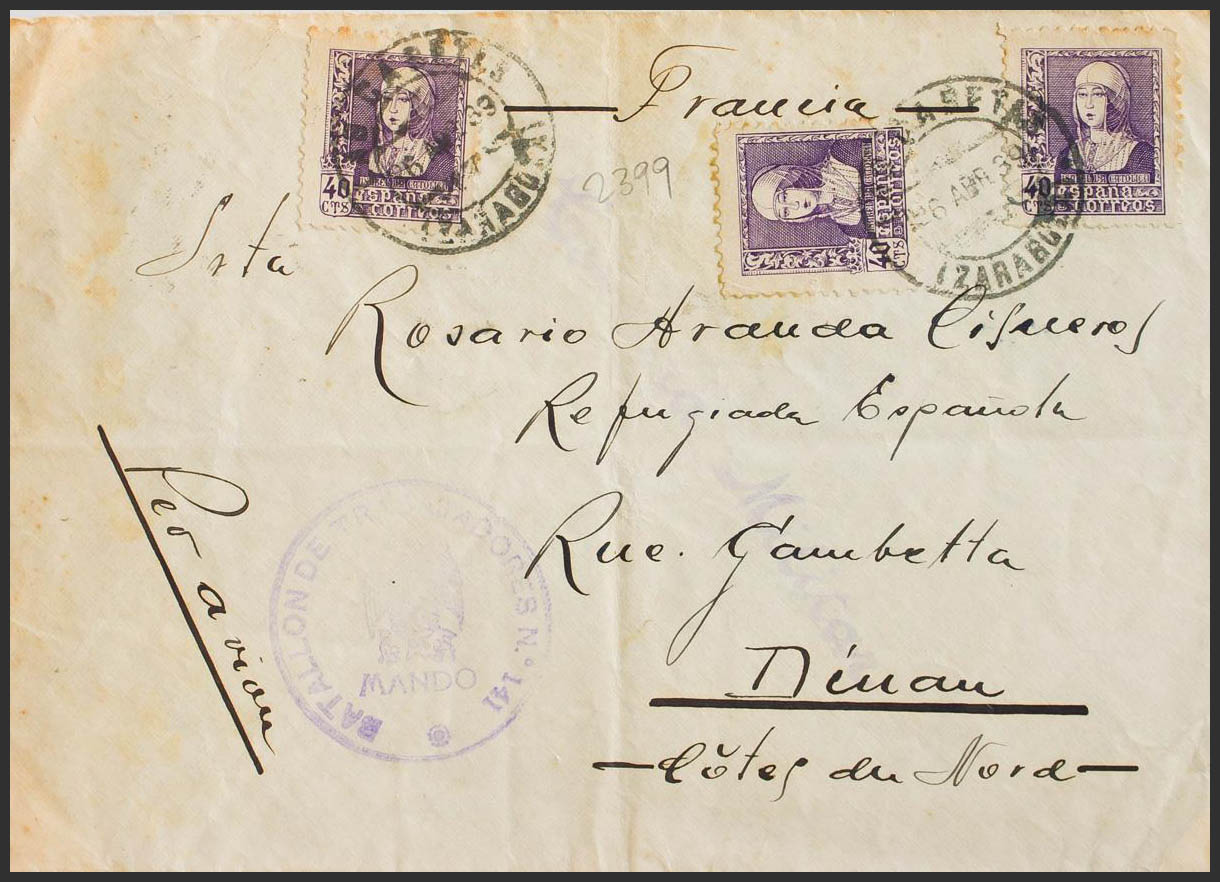 Francia
2399
ISABEL LA CATOLICA
40 CTS
España
correos
40 CTS
España
correos
ISABEL LA CATOLICA
40 CTS
España
correos
26 ABR 39
(ZARAGOZA)
Srta
Rosario Aranda Cisneros
Refugiada Española
Rue. Gambetta
Dinan
Côtes du Nord
Por avion
BATALLON DE TRABAJADORES N.º 141
MANDO